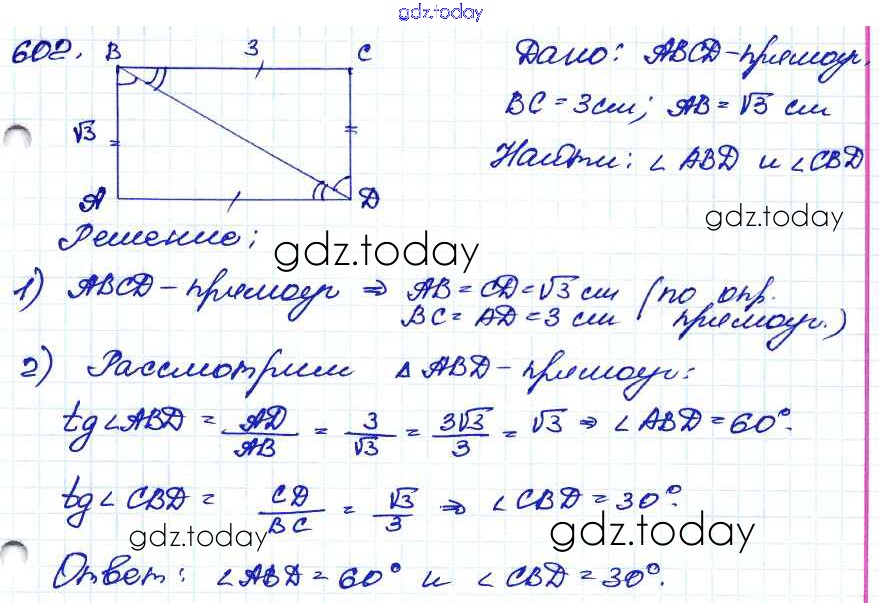 gdz.today
602.
B 3 C
√3
A D
Дано: ABCD-прямоуг.
BC = 3см; AB = √3 см
Найти: ∠ABD и ∠CBD
gdz.today
Решение:
gdz.today
1) ABCD-прямоуг ⇒ AB = CD = √3 см (по опр.
BC = AD = 3 см прямоуг.)
2) Рассмотрим △ABD-прямоуг:
tg∠ABD = AD/AB = 3/√3 = 3√3/3 = √3 ⇒ ∠ABD = 60°.
tg∠CBD = CD/BC = √3/3 ⇒ ∠CBD = 30°.
gdz.today gdz.today
Ответ: ∠ABD = 60° и ∠CBD = 30°.